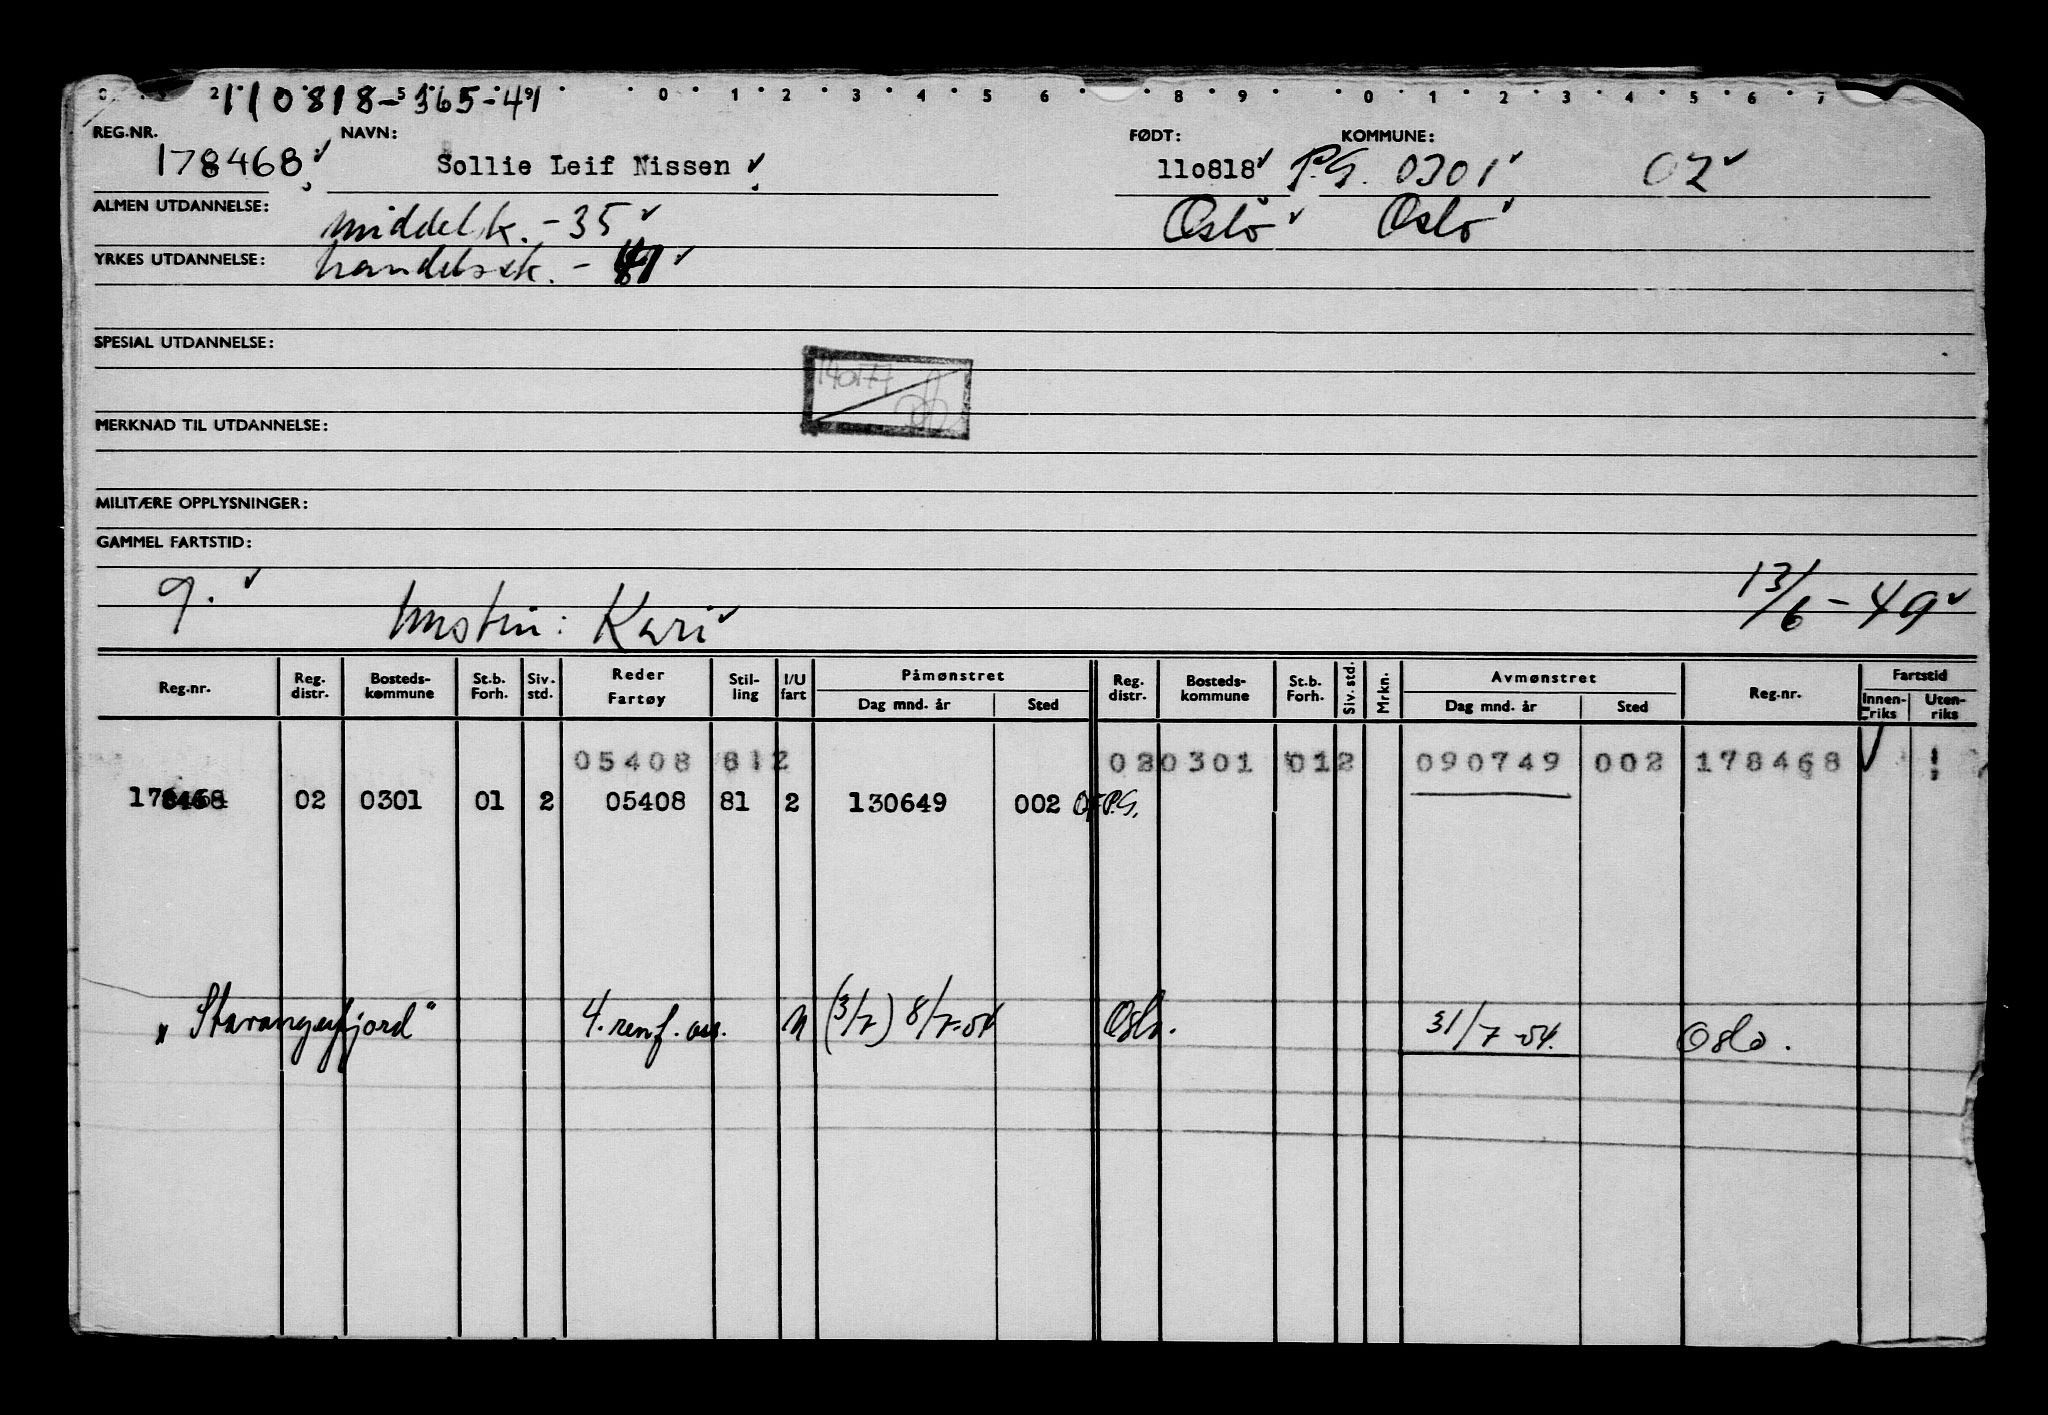 110818-365-41
0 1 2 3 4 5 6 8 9 0 1 2 3 4 5 6 7
REG.NR. NAVN: FØDT: KOMMUNE:
178468 Sollie Leif Nissen 110818 P.G. 0301 02
ALMEN UTDANNELSE: middelsk. - 35 Oslo Oslo
YRKES UTDANNELSE: handelssk. -
SPESIAL UTDANNELSE:
140177
MERKNAD TIL UTDANNELSE:
MILITÆRE OPPLYSNINGER:
GAMMEL FARTSTID:
g. hustru: Kari 13/6-49
Reg.nr. Reg. distr. Bosteds-kommune St.b. Forh. Siv. std. Reder Fartøy Stil-ling I/U fart Påmønstret Dag mnd. år Sted Reg. distr. Bosteds-kommune St.b. Forh. Siv. std. Mrkn. Avmønstret Dag mnd. år Sted Reg.nr. Fartstid Innen-riks Uten-riks
05408 812 020301 012 090749 002 178468
178468 02 0301 01 2 05408 81 2 130649 002 P.G.
"Stavangerfjord" 4. renf. ass. U (3/7) 8/7-54 Oslo. 31/7-54. Oslo.